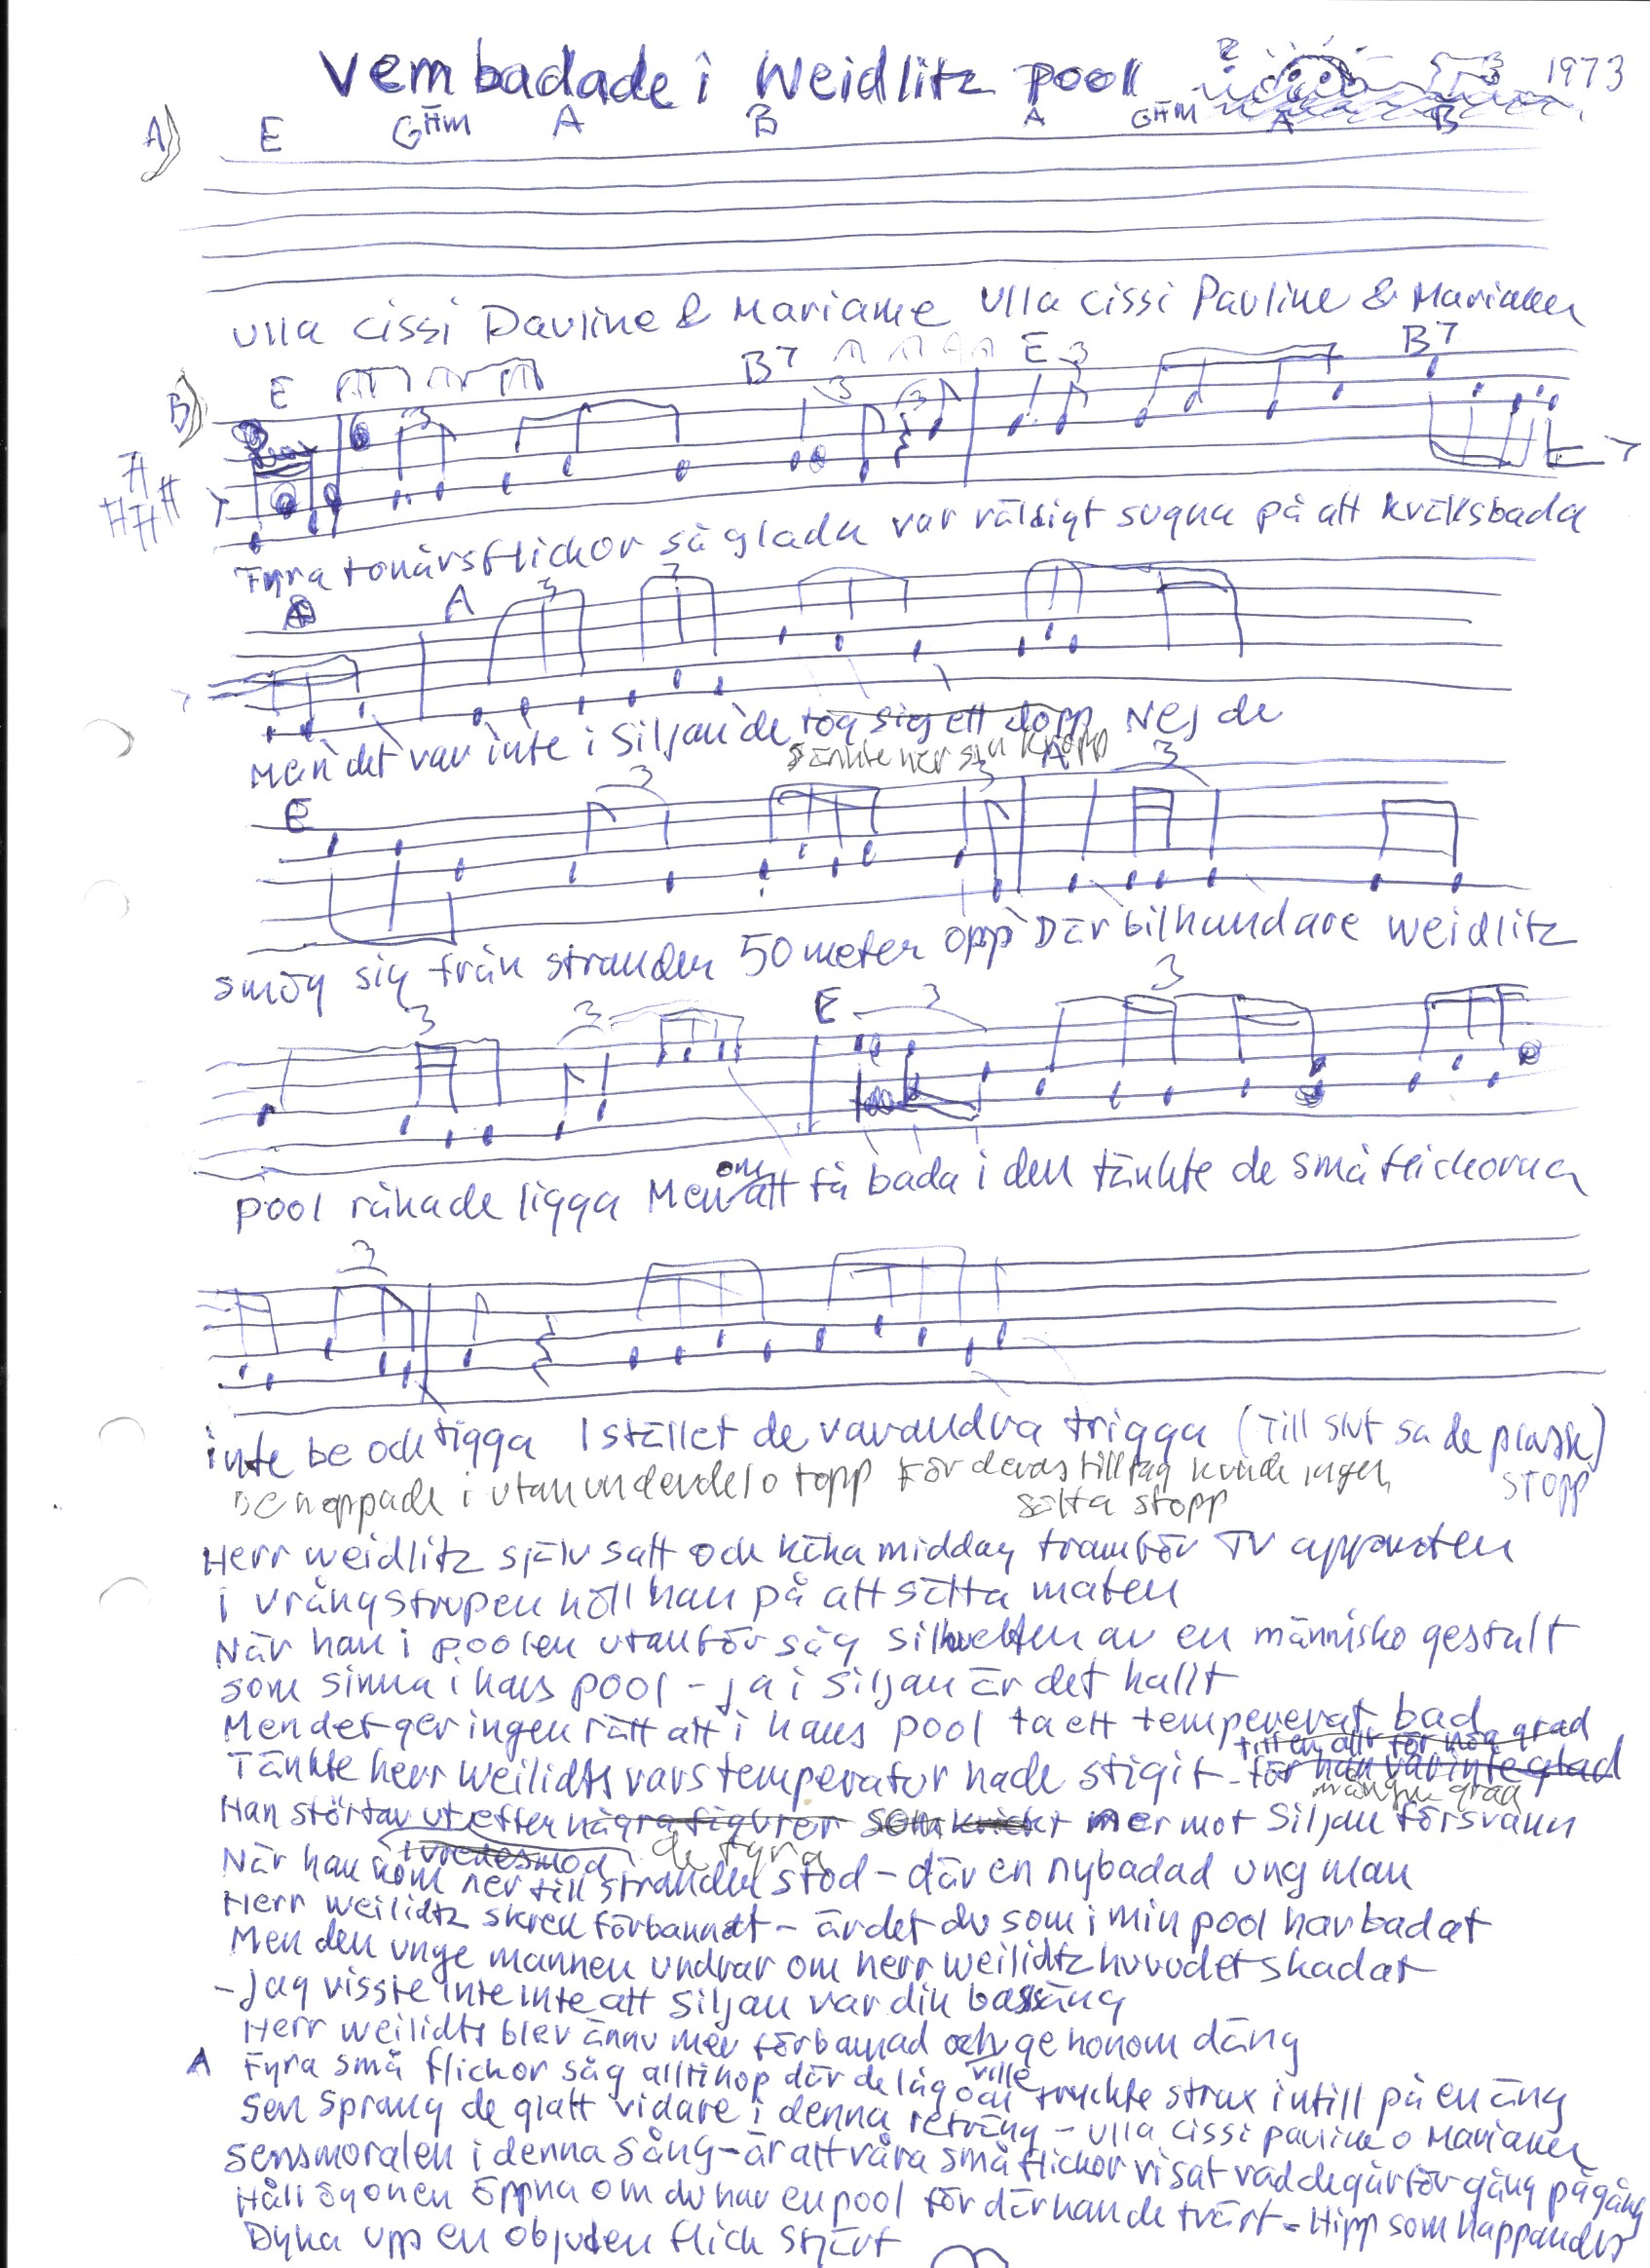 Vem badade i Weidlitz pool 1973
A) E G#m A B A G#m A B
Ulla Cissi Pauline & Marianne Ulla Cissi Pauline & Marianne
B) E B7 E 3 B7
3 3 3
Fyra tonårsflickor så glada var väldigt sugna på att kvällsbada
A 3 3
Men det var inte i Siljan de tog sig ett dopp Nej de
sänkte ner sin kropp
E 3 3 A 3
smög sig från stranden 50 meter opp Där bilhandlare Weidlitz
3 3 E 3 3
pool råkade ligga Men om att få bada i den tänkte de små flickorna
3
inte be och tigga I stället de varandra trigga (Till slut sa de plask)
De hoppade i utan underdel o topp För deras tilltag kunde ingen STOPP
sätta stopp
Herr Weidlitz själv satt och käka middag framför TV apparaten
i vrångstrupen höll han på att sätta maten
När han i poolen utanför såg silhuetten av en människo gestalt
som simma i hans pool - ja i Siljan är det kallt
Men det ger ingen rätt att i hans pool ta ett tempererat bad
till en allt för hög grad
Tänkte herr Weilidts vars temperatur hade stigit - för han var inte glad
många grad
Han störtar ut efter några figurer som kvickt ner mot Siljan försvann
de fyra
När han kom ner till stranden stod - där en nybadad ung man
Herr Weilidtz skrek förbannat - är det du som i min pool har badat
Men den unge mannen undrar om herr Weilidtz huvudet skadat
- Jag visste inte inte att Siljan var din bassäng
Herr Weilidts blev ännu mer förbannad och ge honom däng
ville
A Fyra små flickor såg alltihop där de låg och tryckte strax intill på en äng
Sen sprang de glatt vidare i denna reträng - Ulla Cissi Pauline o Marianne
Sensmoralen i denna sång - är att våra små flickor visat vad de går för gång på gång
Håll ögonen öppna om du har en pool för där kan de tvärt - Hipp som happ
Dyka upp en objuden flick stjärt